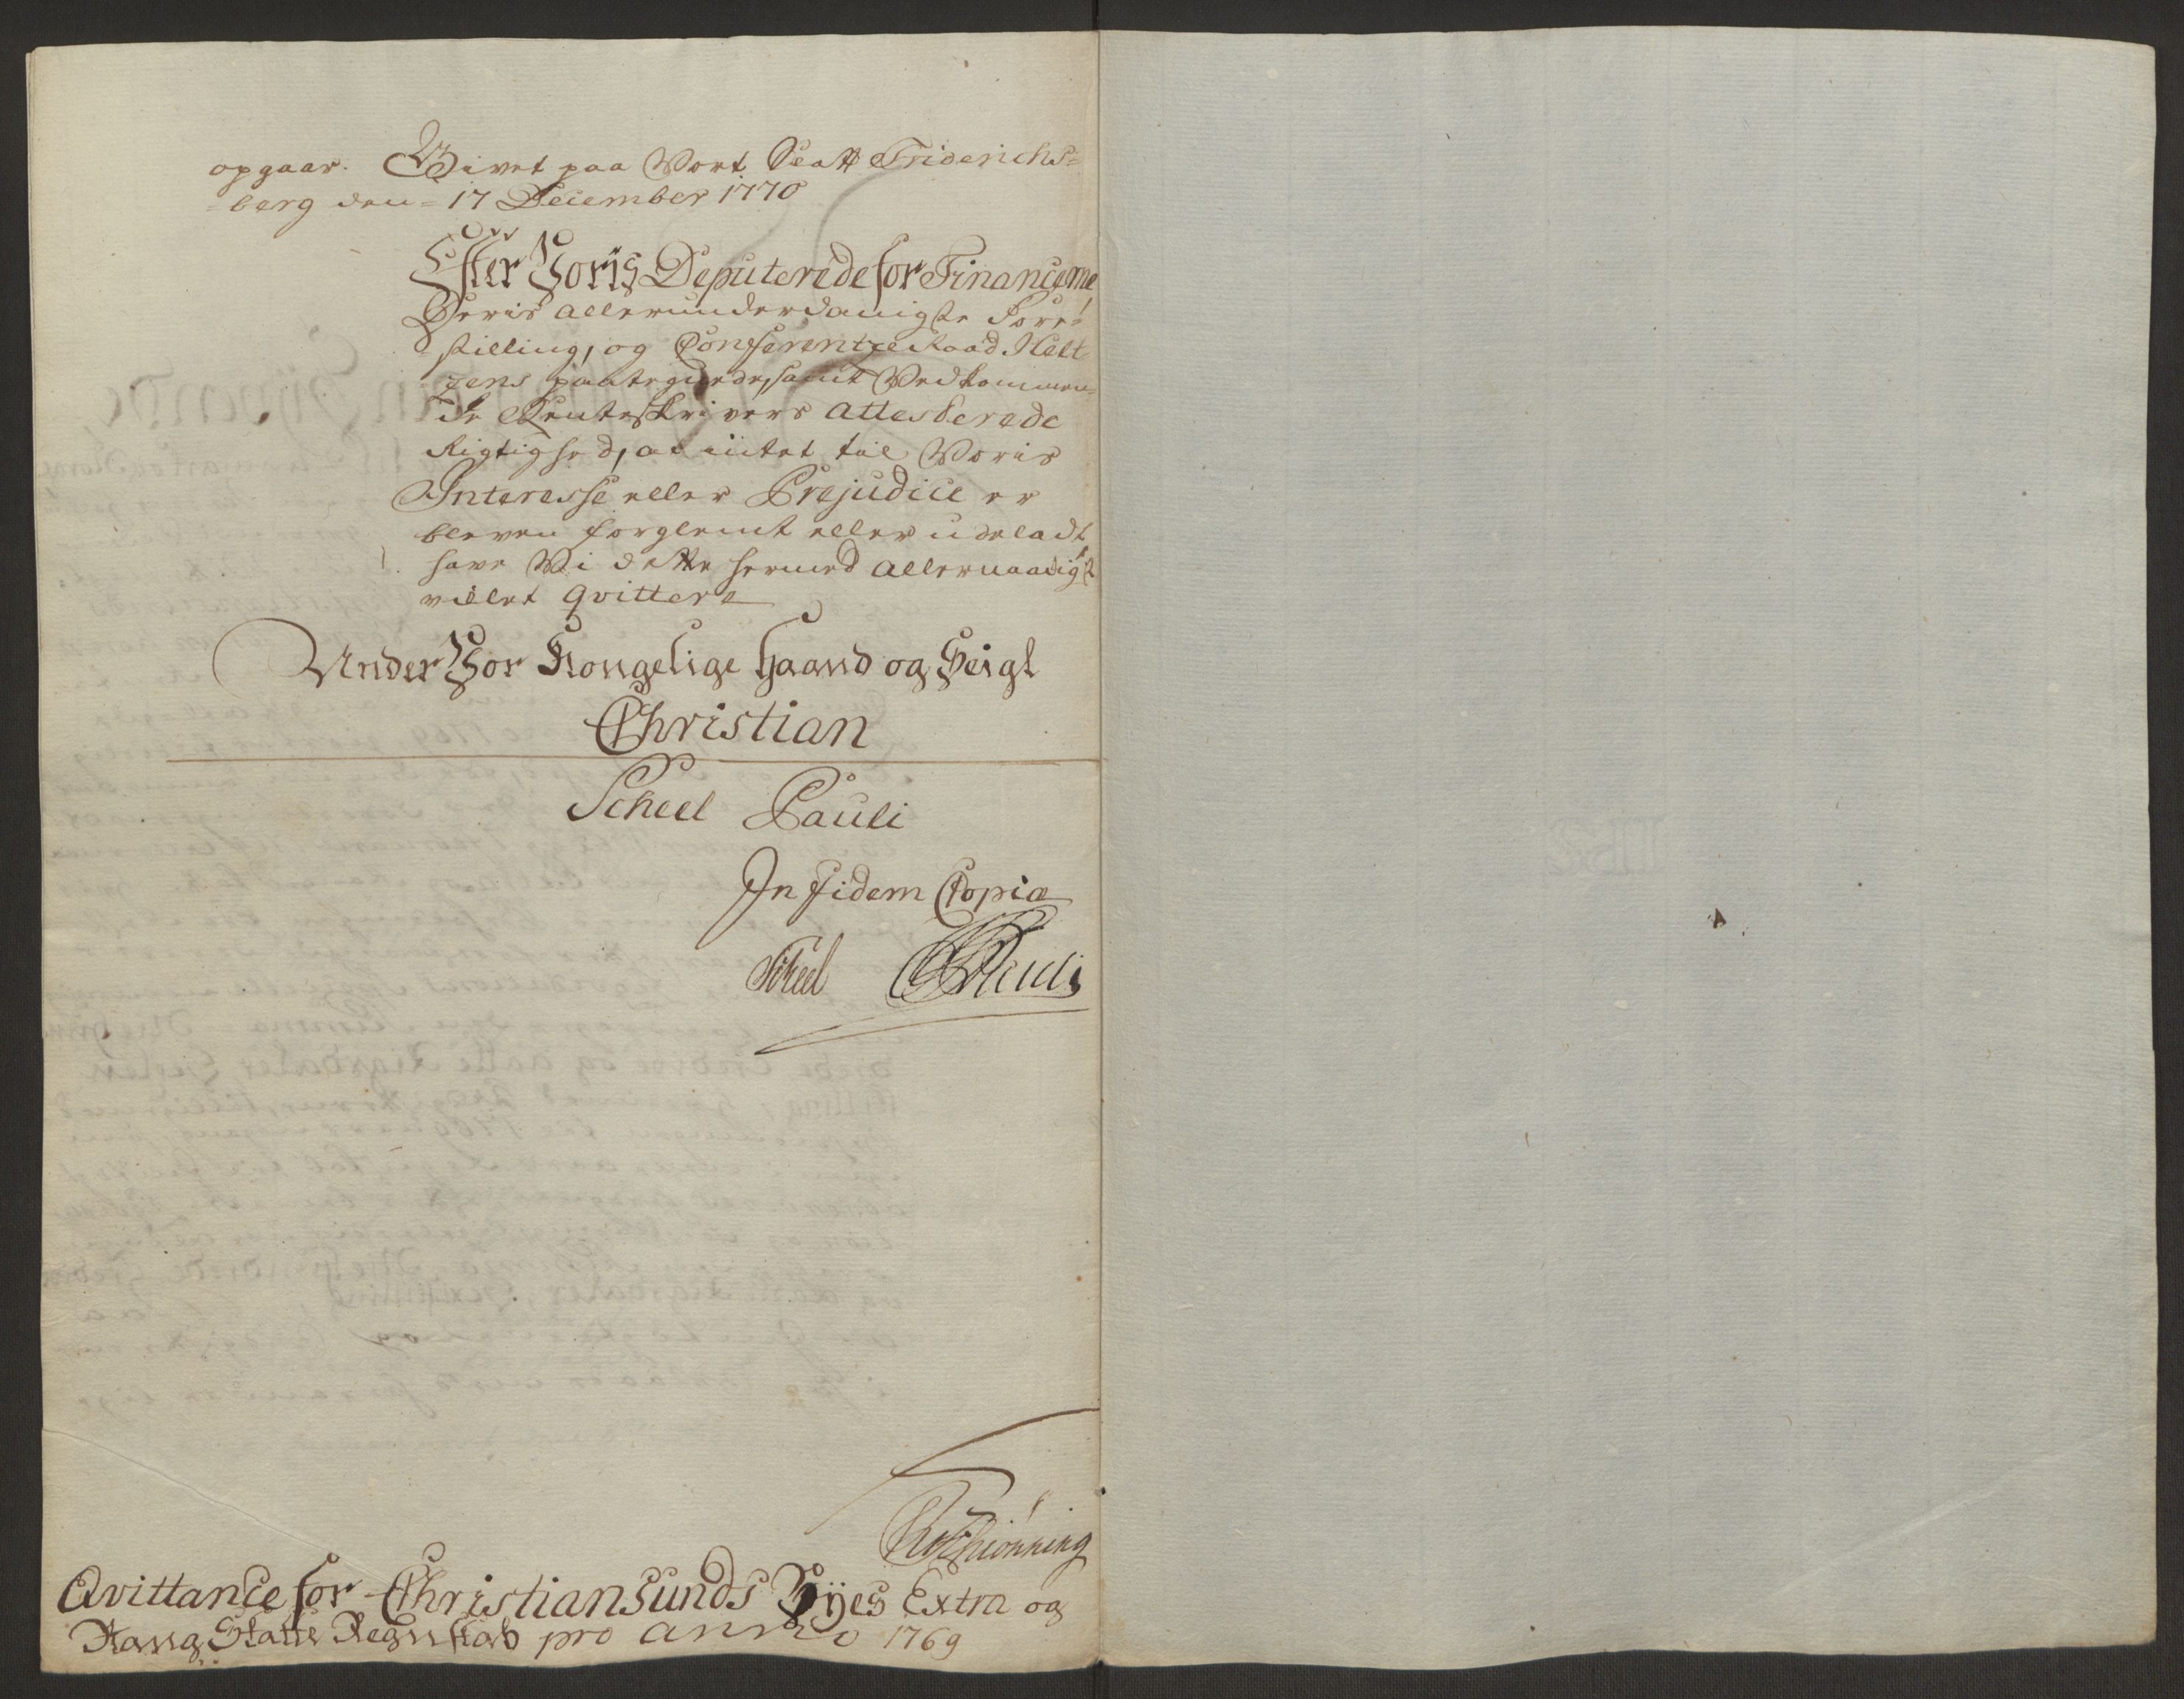 opgaar. Givet paa Vort Slott Friderichs=
=berg den = 17 December 1770
Efter Voris Deputerede for Financerne
Deris allerunderdanigste Fore=
stilling, og Conferentze Raad Helt=
zens paategnede, samt Vedkommen=
de Renteskrivers attesterede
Rigtighed, at intet til Voris
Interesse eller Prejudice er
bleven forglemt eller udeladt
have Vi dette hermed allernaadigst
villet qvittere
Under Vor Kongelige Haand og Seigl
Christian
Scheel Pauli
In fidem Copiæ
Scheel Pauli
Qvittance for Christiansunds Byes Extra og
Rang Skatte Regnskab pro anno 1769